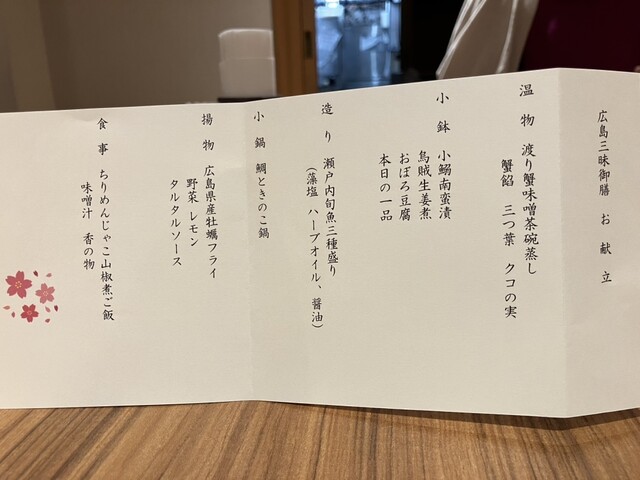 広島三昧御膳 お献立
温物 渡り蟹味噌茶碗蒸し
蟹餡 三つ葉 クコの実
小鉢 小鰯南蛮漬
烏賊生姜煮
おぼろ豆腐
本日の一品
造り 瀬戸内旬魚三種盛り
(藻塩 ハーブオイル、醤油)
小鍋 鯛ときのこ鍋
揚物 広島県産牡蠣フライ
野菜 レモン
タルタルソース
食事 ちりめんじゃこ山椒煮ご飯
味噌汁 香の物